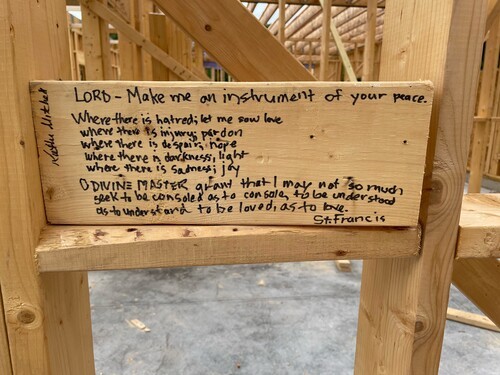 LORD - Make me an instrument of your peace.
Where there is hatred; let me sow love
where there is injury; pardon
where there is despair, hope
where there is darkness; light
where there is sadness; joy
O DIVINE MASTER grant that I may not so much
seek to be consoled as to console, to be understood
as to understand to be loved, as to love.
St. Francis